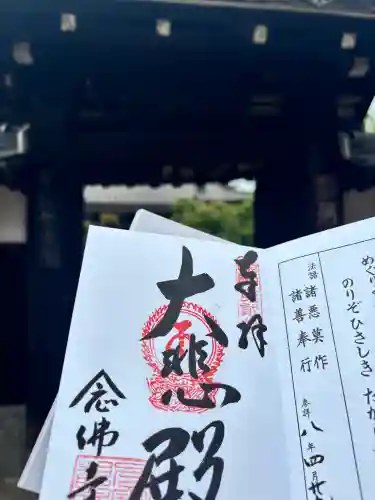 めぐり
のりぞひさしき
法語 諸悪莫作
諸善奉行
参詣 八年四月廿
奉拝
大悲殿
念佛寺